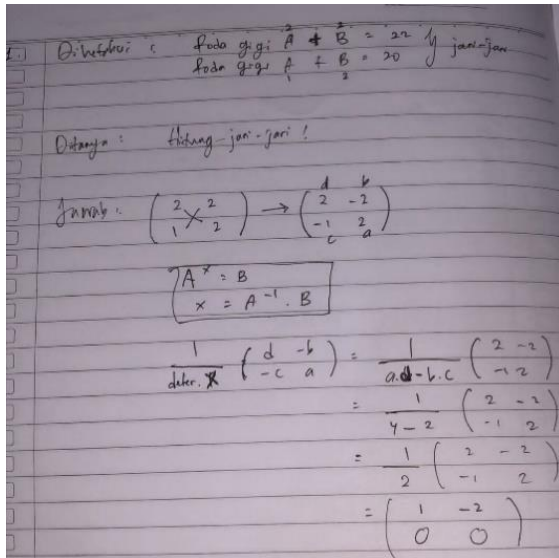 1. Diketahui : Roda gigi A + B = 22 } jari-jari
2 2
Roda gigi A + B = 20
1 2
Ditanya : Hitung jari-jari !
Jawab : ( 2 2 ) → ( 2 -2 )
( 1 2 ) ( -1 2 )
d b
c a
A x = B
x = A⁻¹ . B
1/deter. x ( d -b ) = 1/a.d-b.c ( 2 -2 )
( -c a ) ( -1 2 )
= 1/4-2 ( 2 -2 )
( -1 2 )
= 1/2 ( 2 -2 )
( -1 2 )
= ( 1 -2 )
( 0 0 )